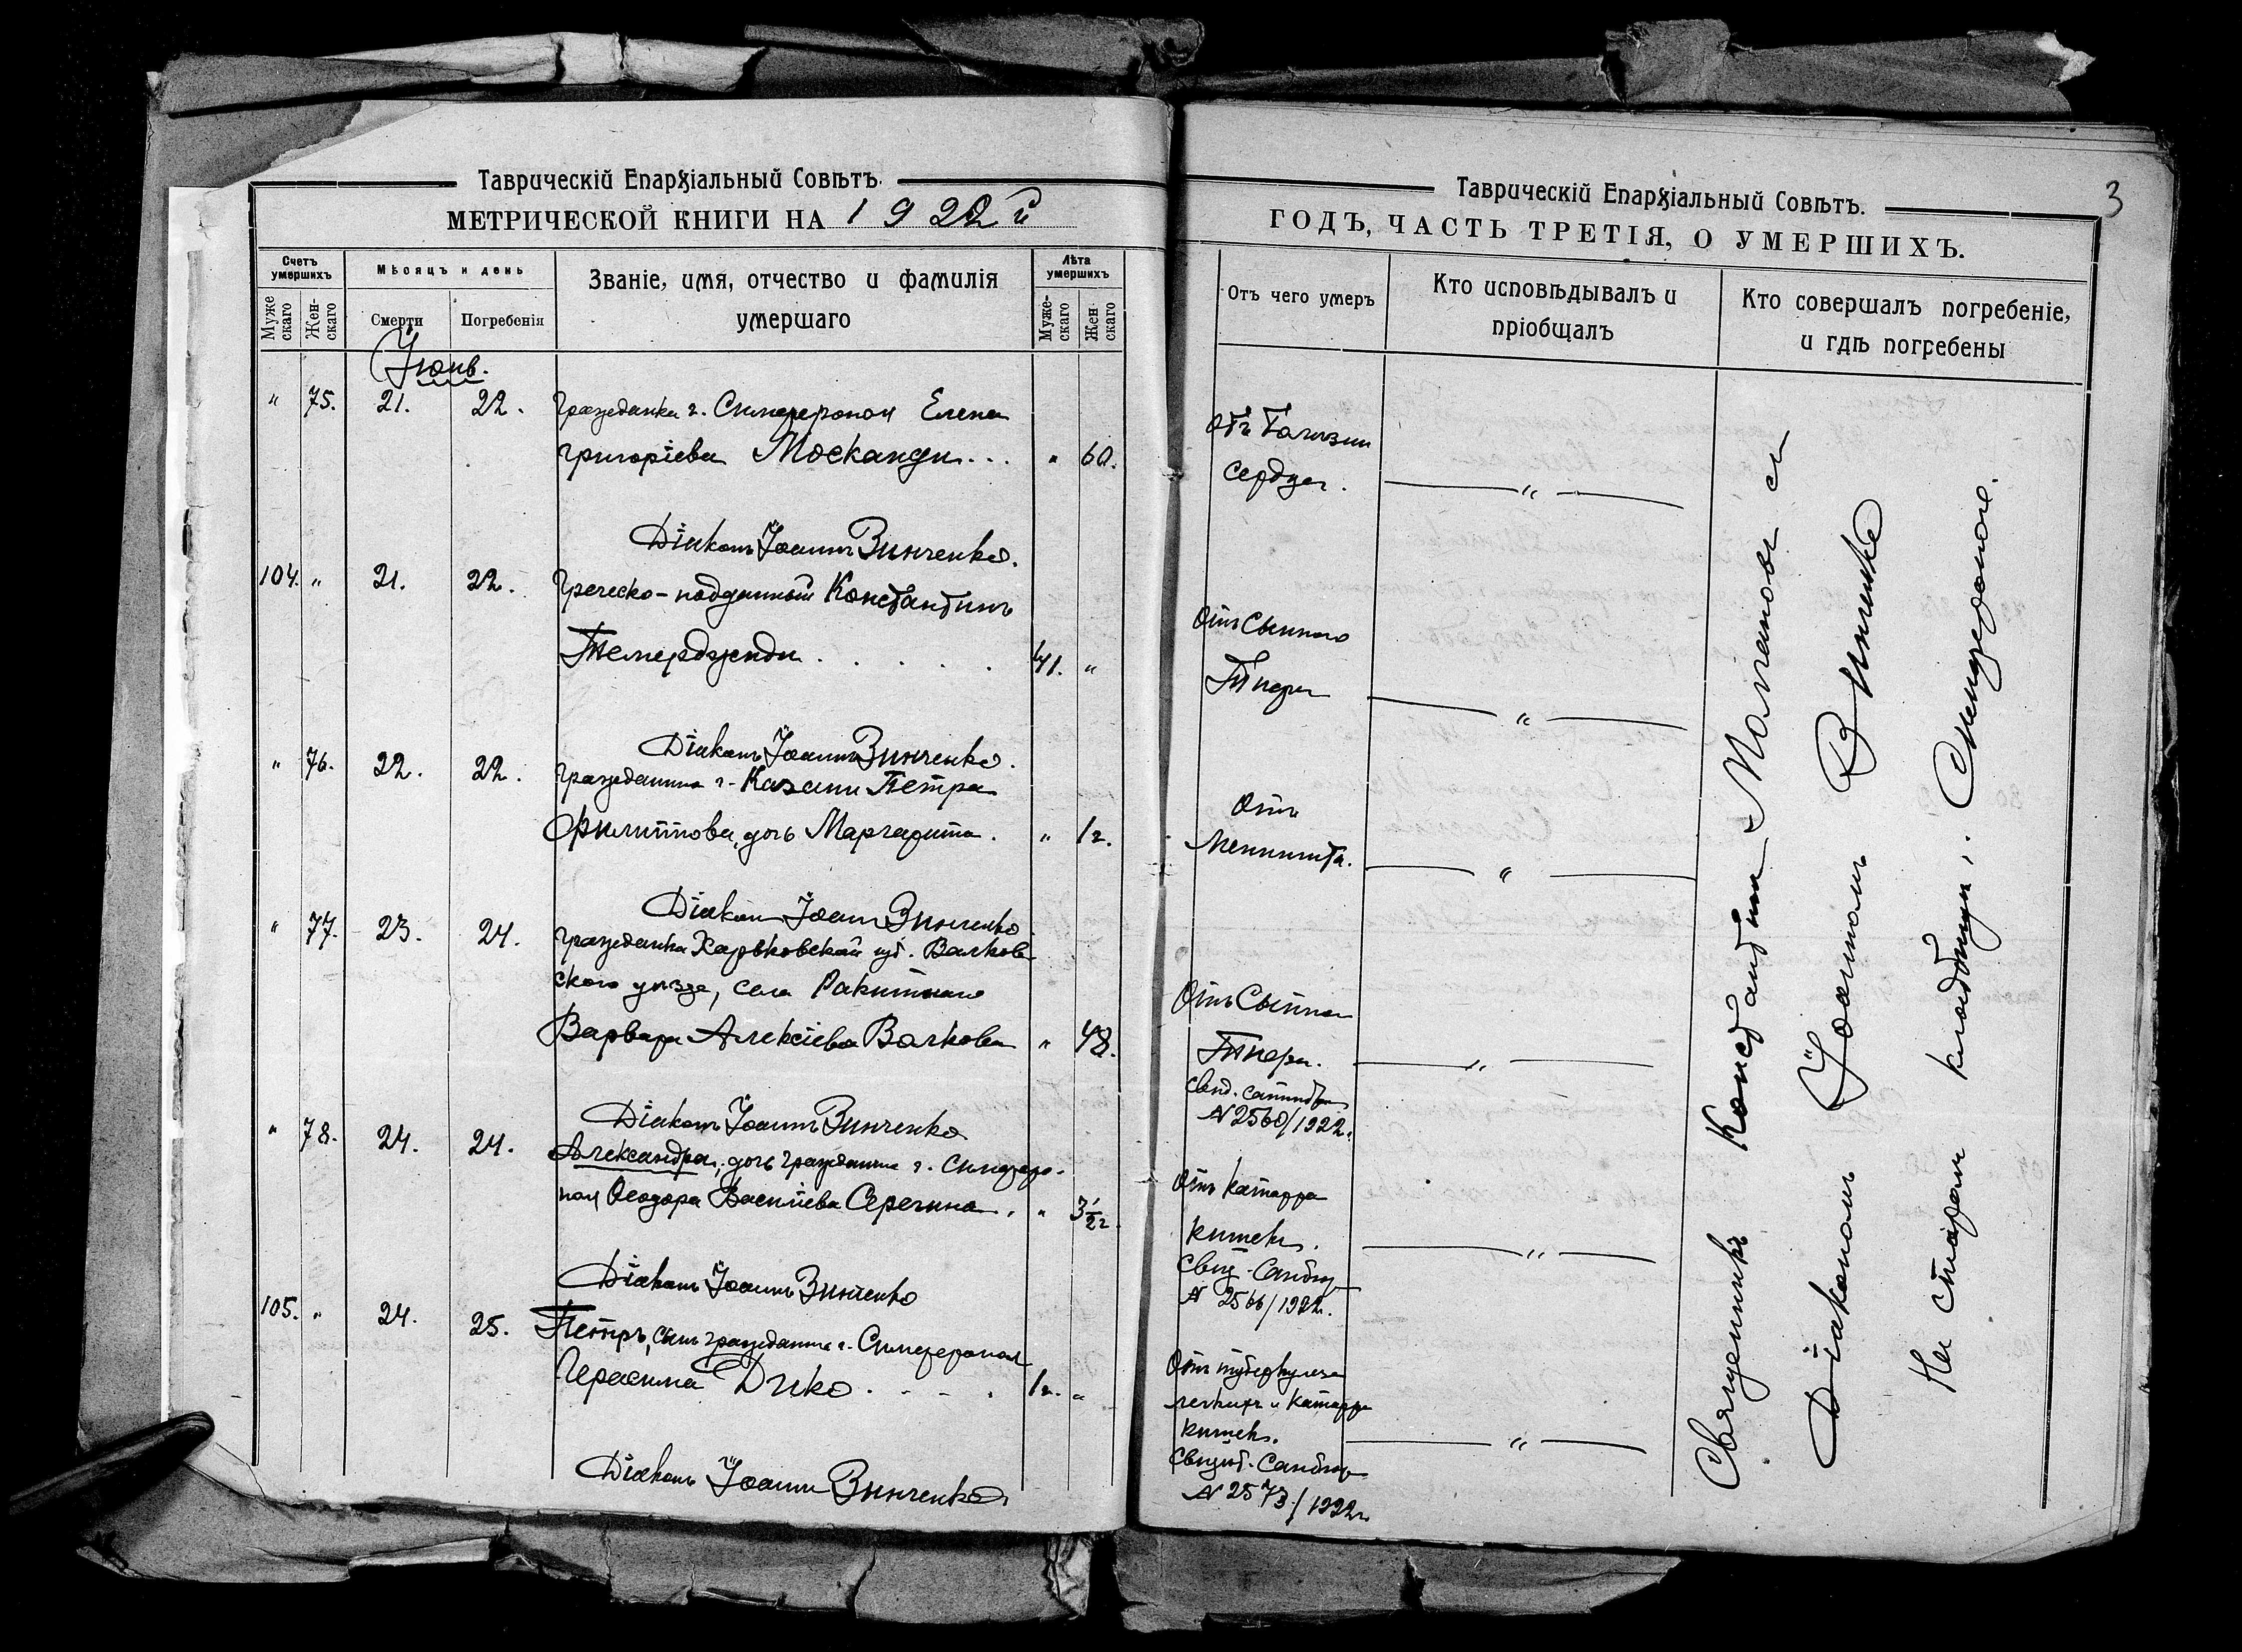 Таврическій Епархіальный Совѣтъ.
МЕТРИЧЕСКОЙ КНИГИ НА 1922й
Счетъ умершихъ
Мѣсяцъ и день
Званіе, имя, отчество и фамилія
умершаго
Лѣта умершихъ
Мужескаго
Женскаго
Смерти
Погребенія
Мужескаго
Женскаго
Іюнь.
" 75. 21. 22. Гражданка г. Симферополя Елена
Григоріева Москанди... " 60.
Діаконъ Іоаннъ Зинченко.
104. " 21. 22. Греческо-подданный Константинъ
Темерджиди . . . . . 41. "
Діаконъ Іоаннъ Зинченко.
" 76. 22. 22. Гражданина г. Казани Петра
Филиппова, дочь Маргарита. " 1 г.
Діаконъ Іоаннъ Зинченко
" 77. 23. 24. Гражданка Харьковской губ. Валков-
скаго уѣзда, села Ракитнаго
Варвара Алексіева Волкова " 48.
Діаконъ Іоаннъ Зинченко
" 78. 24. 24. Александра, дочь гражданина г. Симферо-
поля Ѳеодора Василіева Серегина. " 3 1/2 г.
Діаконъ Іоаннъ Зинченко
105. " 24. 25. Петръ, сынъ гражданина г. Симферополя
Герасима Дико . - - . 1 г. "
Діаконъ Іоаннъ Зинченко
Таврическій Епархіальный Совѣтъ.
3
ГОДЪ, ЧАСТЬ ТРЕТІЯ, О УМЕРШИХЪ.
Отъ чего умеръ
Кто исповѣдывалъ и
пріобщалъ
Кто совершалъ погребеніе,
и гдѣ погребены
Отъ болѣзни
сердца. "
Отъ сыпного
Тифа "
Отъ
менингита. "
Отъ сыпного
Тифа. "
свид.
№ 2560/1922.
Отъ катарра
кишекъ. "
свид.
№ 2566/1922.
Отъ туберкулеза
легкихъ и катарра
кишекъ. "
свидѣт.
№ 2573/1922 г.
Священникъ Константинъ съ
Діакономъ Іоанномъ Зинченко
На старом кладбищѣ г. Симферополѣ.